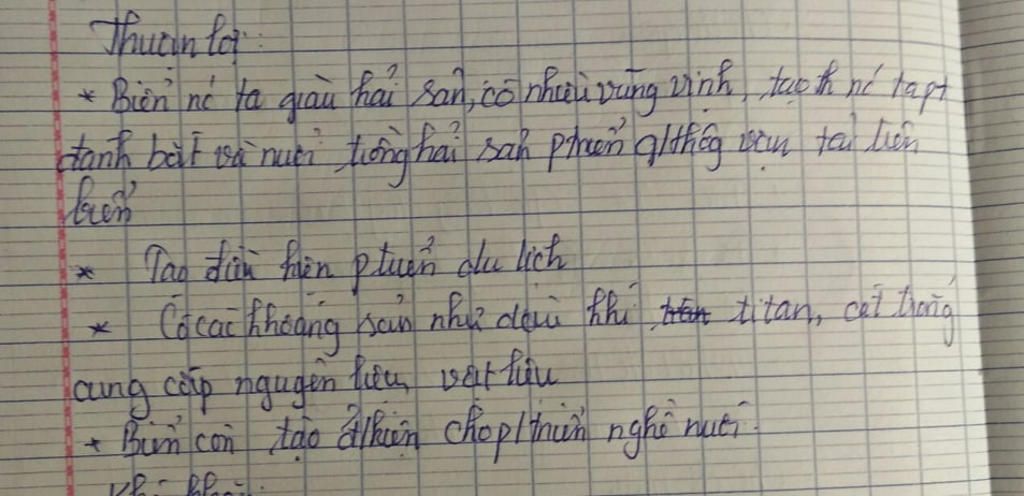 Thuận lợi:
* Biển nc ta giàu hải sản, có nhiều vũng vịnh, tạo th nc ta pt
đánh bắt và nuôi trồng hải sản ptriển g/thông vận tải trên
biển
* Tạo điều kiện ptriển du lịch
* Có các khoáng sản như dầu khí, titan, cát trắng
cung cấp nguyên liệu, vật liệu
* Biển còn tạo đ/kiện cho p/triển nghề muối.
Khó khăn: